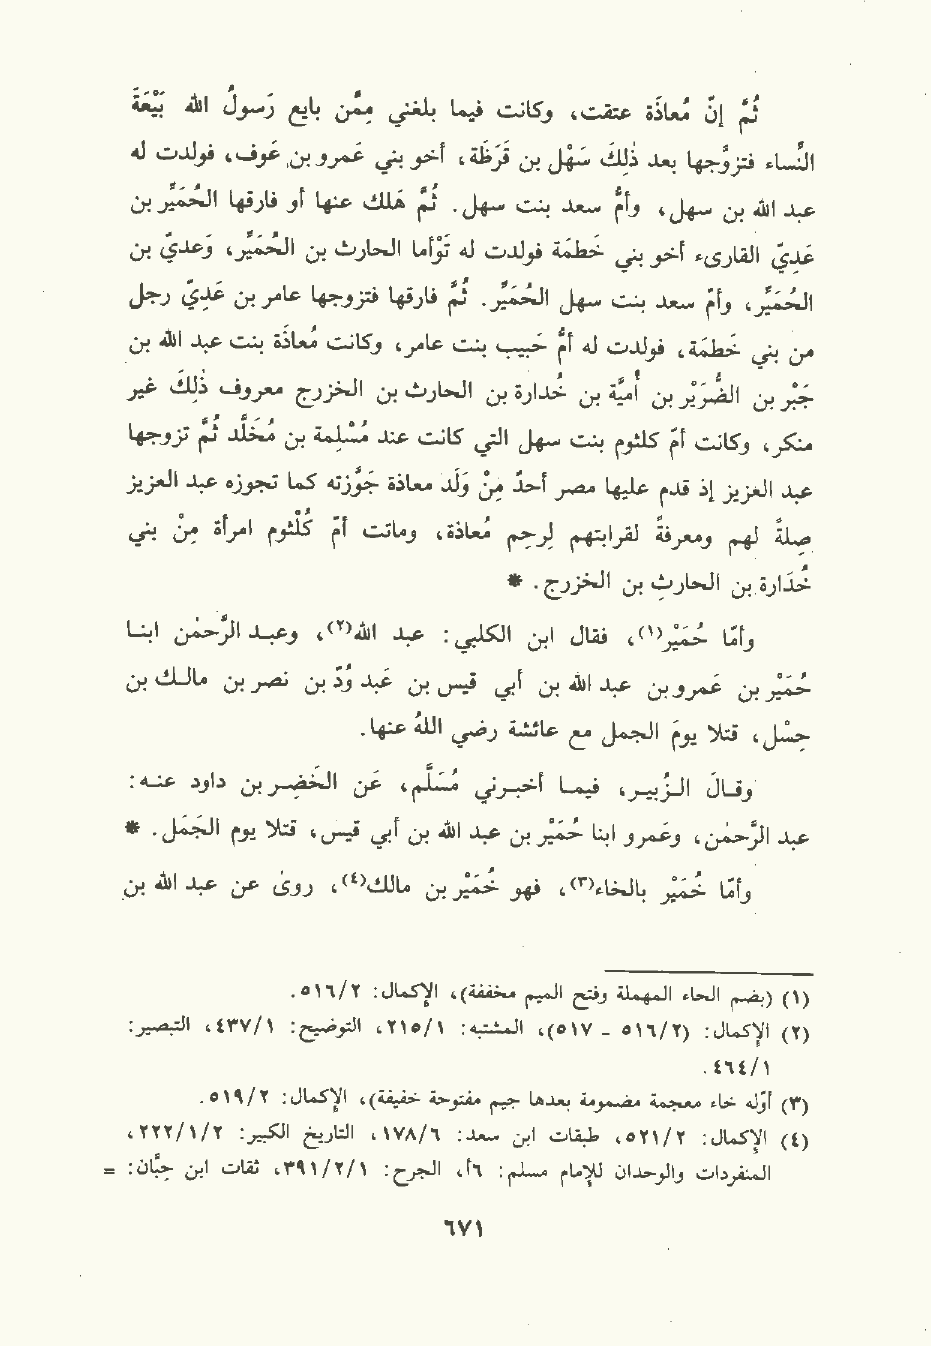 ثُمَّ إنَّ مُعاذَةَ عتقت، وكانت فيما بلغني مِمَّن بايع رَسولُ الله بَيْعَةَ
النِّساء فتزوَّجها بعد ذٰلِكَ سَهْل بن قَرَظَة، أخو بني عَمرو بن عَوف، فولدت له
عبد الله بن سهل، وأُم سعد بنت سهل. ثُمَّ هَلك عنها أو فارقها الحُمَيِّر بن
عَدِيّ القارىء أخو بني خَطمَة فولدت له تَوْأما الحارث بن الحُمَيِّر، وَعديّ بن
الحُمَيِّر، وأم سعد بنت سهل الحُمَيِّر. ثُمَّ فارقها فتزوجها عامر بن عَدِيّ رجل
من بني خَطمَة، فولدت له أُم حَبيب بنت عامر، وكانت مُعاذَة بنت عبد الله بن
جَبْر بن الضُّرَيْر بن أُميّة بن خُدارة بن الحارث بن الخزرج معروف ذٰلِكَ غير
منكر، وكانت أمّ كلثوم بنت سهل التي كانت عند مَسْلِمة بن مُخَلَّد ثُمَّ تزوجها
عبد العزيز إذ قدم عليها مصر أحدٌ مِنْ وَلَد معاذة جَوَّزته كما تجوزه عبد العزيز
صِلَةً لهم ومعرفةً لقرابتهم لِرحِمِ مُعاذة، وماتت أم كلْثوم امرأة مِنْ بني
خُدَارة بن الحارث بن الخزرج. *
وأمّا حُمَيْر(١)، فقال ابن الكلبي: عبد الله(٢)، وعبد الرَّحمٰن ابنا
حُمَيْر بن عَمرو بن عبد الله بن أبي قيس بن عَبد وُدّ بن نصر بن مالك بن
حِسْل، قتلا يوم الجمل مع عائشة رضي اللهُ عنها.
وقال الزُبير، فيما أخبرني مُسَلَّم، عَن الخَضِر بن داود عنه:
عبد الرَّحمٰن، وعَمرو ابنا حُمَيْر بن عبد الله بن أبي قيس، قتلا يوم الجَمَل. *
وأمّا خُمَيْر بالخاء(٣)، فهو خُمَيْر بن مالك(٤)، روىٰ عن عبد الله بن
(١) (بضم الحاء المهملة وفتح الميم مخففة)، الإكمال: ٥١٦/٢.
(٢) الإكمال: (٥١٦/٢ - ٥١٧)، المشتبه: ٢١٥/١، التوضيح: ٤٣٧/١، التبصير:
٤٦٤/١.
(٣) أوّله خاء معجمة مضمومة بعدها جيم مفتوحة خفيفة)، الإكمال: ٥١٩/٢.
(٤) الإكمال: ٥٢١/٢، طبقات ابن سعد: ١٧٨/٦، التاريخ الكبير: ٢٢٢/١/٢،
المنفردات والوحدان للإمام مسلم: ٦أ، الجرح: ٣٩١/٢/١، ثقات ابن حِبَّان: =
٦٧١